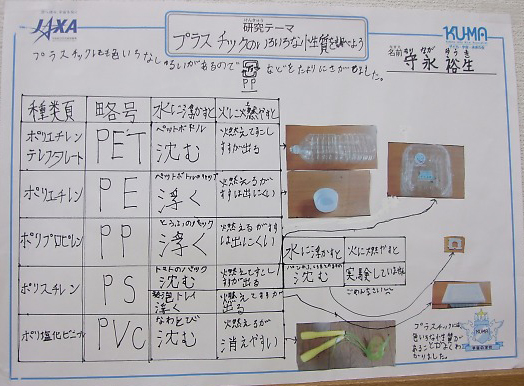 JAXA
けんきゅう
研究テーマ
プラスチックのいろいろな性質を調べよう
KUMA
名前 守永 裕生
プラスチックにも色いろなし
るいがあるので
PP
などをたよりにさがせました。
種類頁 略号 水に浮かすと 火に燃やすと
ポリエチレン
テレフタレート
PET
ペットボトル
沈む
燃えてすこし
すすが出る
ポリエチレン
PE
浮く
燃えるがす
すは出にくい
ポリプロピレン
PP
とうふのパック
浮く
燃えるがす
すは出にくい
水に浮かすと 火に燃やすと
沈む
実験していません
ごめんなさい
ポリスチレン
PS
トマトのパック
沈む
燃えてすこし
すすが出る
発泡トレイ
浮く
燃えてすすが
出る
ポリ塩化ビニール
PVC
なわとび
沈む
燃えるが
消えやすい
プラスチックには
色いろな性質が
あることがよくわ
かりました。
KUMA